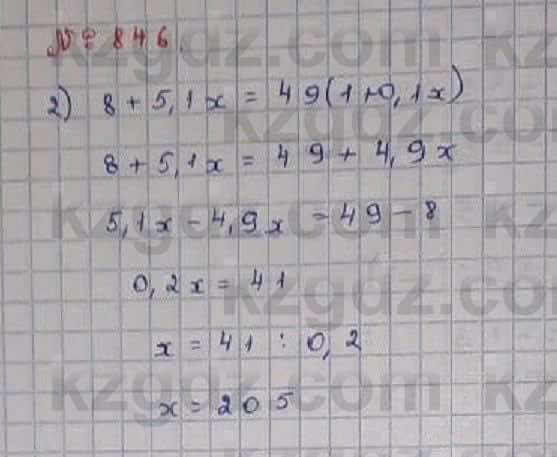 № 846.
2) 8 + 5,1x = 49(1+0,1x)
8 + 5,1x = 49 + 4,9x
5,1x - 4,9x = 49 - 8
0,2x = 41
x = 41 : 0,2
x = 205
kzgdz.com
kzgdz.com
kzgdz.com
kzgdz.com
kzgdz.com